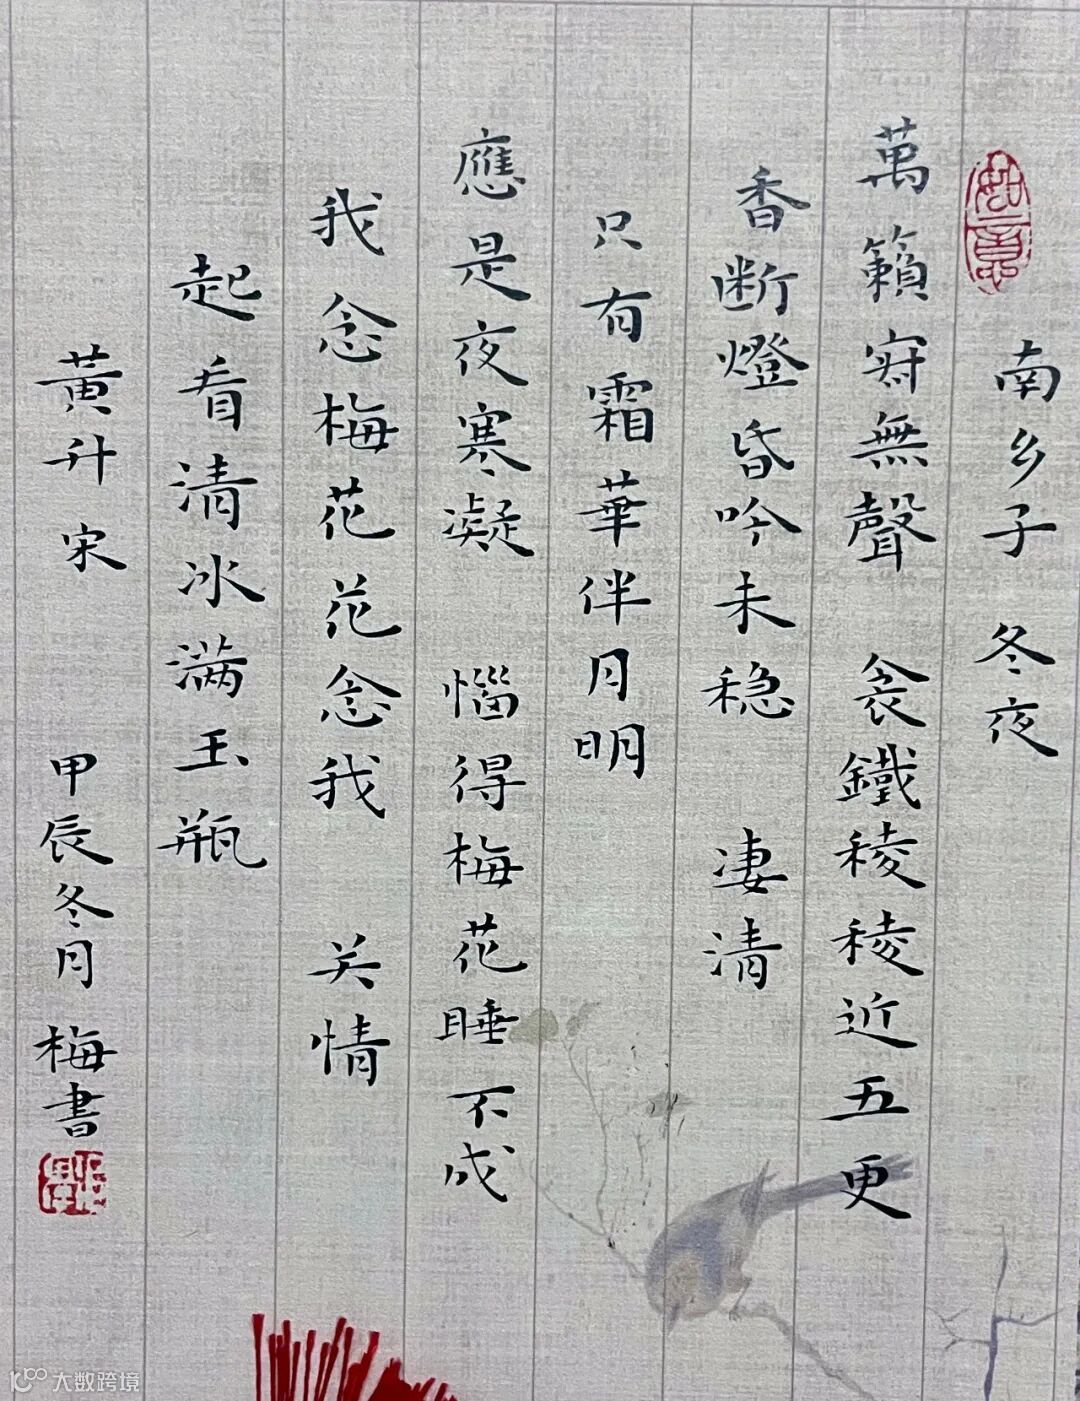 如意
南乡子 冬夜
萬籟寂無聲 衾鐵稜稜近五更
香断燈昏吟未穏 凄清
只有霜華伴月明
應是夜寒凝 惱得梅花睡不成
我念梅花花念我 关情
起看清冰满玉瓶
黄升 宋 甲辰冬月 梅書
大数跨境